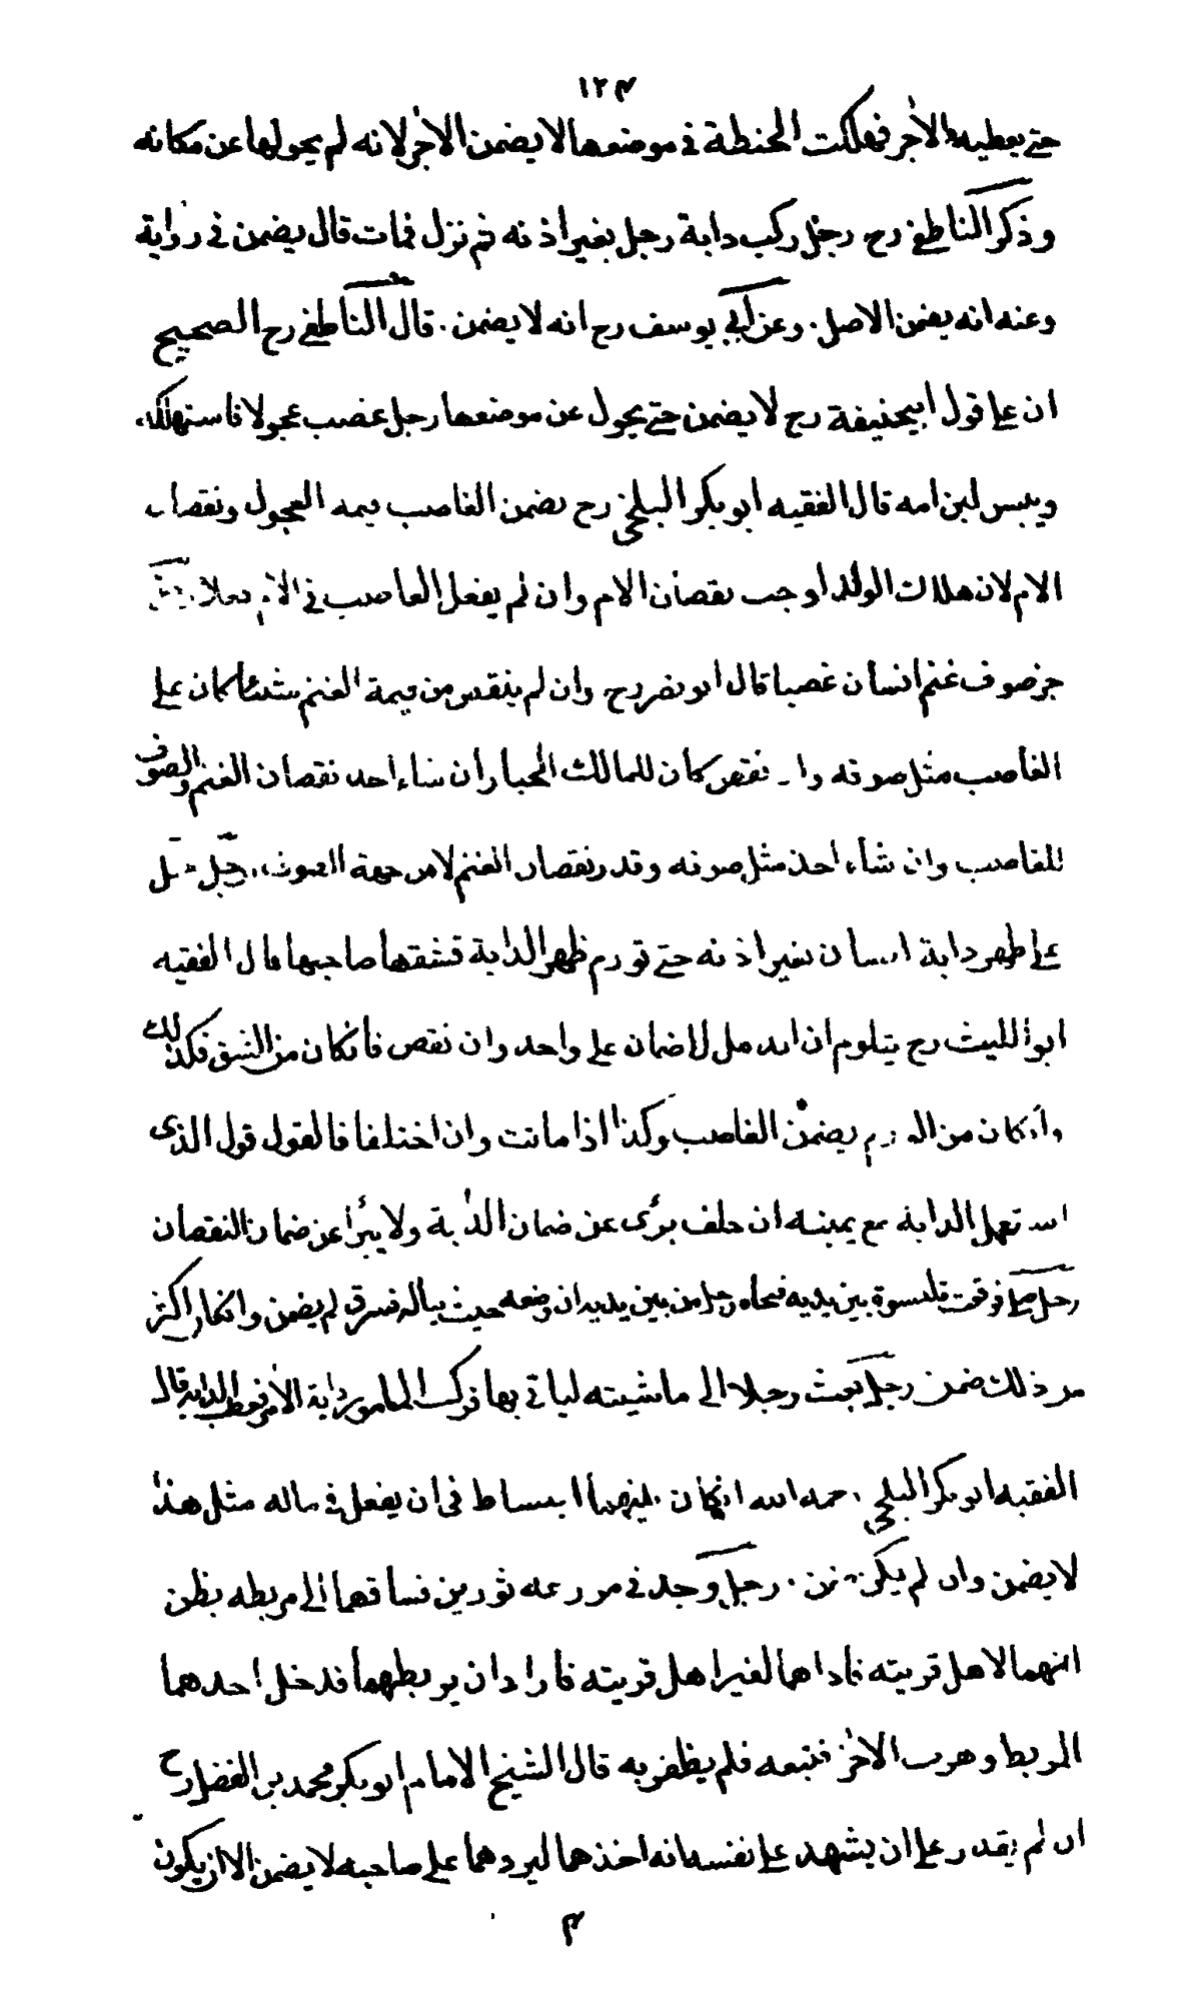 ١٢٤
حتى يعطيه الاجر فهلكت الحنطة فى موضعها لا يضمن الاجر لانه لم يحولها عن مكانه
وذكر الناطفى رح رجل ركب دابة رجل بغير اذنه ثم نزل فمات قال يضمن فى رواية
وعنه انه يضمن الاصل . وعن ابى يوسف رح انه لا يضمن . قال الناطفى رح الصحيح
ان على قول ابيحنيفة رح لا يضمن حتى يحول عن موضعها رجل غصب عجولا فاستهلكه
ويبس لبن امه قال الفقيه ابو بكر البلخى رح يضمن الغاصب قيمة العجول ونقصان
الام لان هلاك الولد اوجب نقصان الام وان لم يفعل الغاصب فى الام فعلا
جز صوف غنم انسان غصبا قال ابو نصر رح وان لم ينقص من قيمة الغنم شيئا كان على
الغاصب مثل صوفه وان نقص كان للمالك الخيار ان شاء اخذ نقصان الغنم والصوف
للغاصب وان شاء اخذ مثل صوفه وقدر نقصان الغنم لا من جهة الصوف رجل
على ظهر دابة انسان بغير اذنه حتى تورم ظهر الدابة فشقها صاحبها قال الفقيه
ابو الليث رح يتلوم ان اندمل لا ضمان على واحد وان نقص فانكان من الشق فكذلك
وانكان من الورم يضمن الغاصب وكذا اذا ماتت وان اختلفا فالقول قول الذى
استعمل الدابة مع يمينه ان حلف برئ عن ضمان الدابة ولا يبرأ عن ضمان النقصان
رجل صلى فوقعت قلنسوة بين يديه فنحاه رجل من بين يديه ان وضعه حيث يناله فسرق لم يضمن وانكان اكثر
من ذلك ضمن رجل بعث رجلا الى ماشيته لياتى بها فركب المامور دابة الآمر فعطب الدابة قال
الفقيه ابو بكر البلخى رحمه الله انكان بينهما انبساط فى ان يفعل فى ماله مثل هذا
لا يضمن وان لم يكن ضمن . رجل وجد فى مزرعه ثورين فساقهما الى مربطه يظن
انهما لاهل قريته فاذا هما لغير اهل قريته فاراد ان يربطهما فدخل احدهما
المربط وهرب الآخر فتبعه فلم يظفر به قال الشيخ الامام ابو بكر محمد بن الفضل رح
ان لم يقدر على ان يشهد على نفسه انه اخذهما ليردهما على صاحبه لا يضمن الا ان يكون